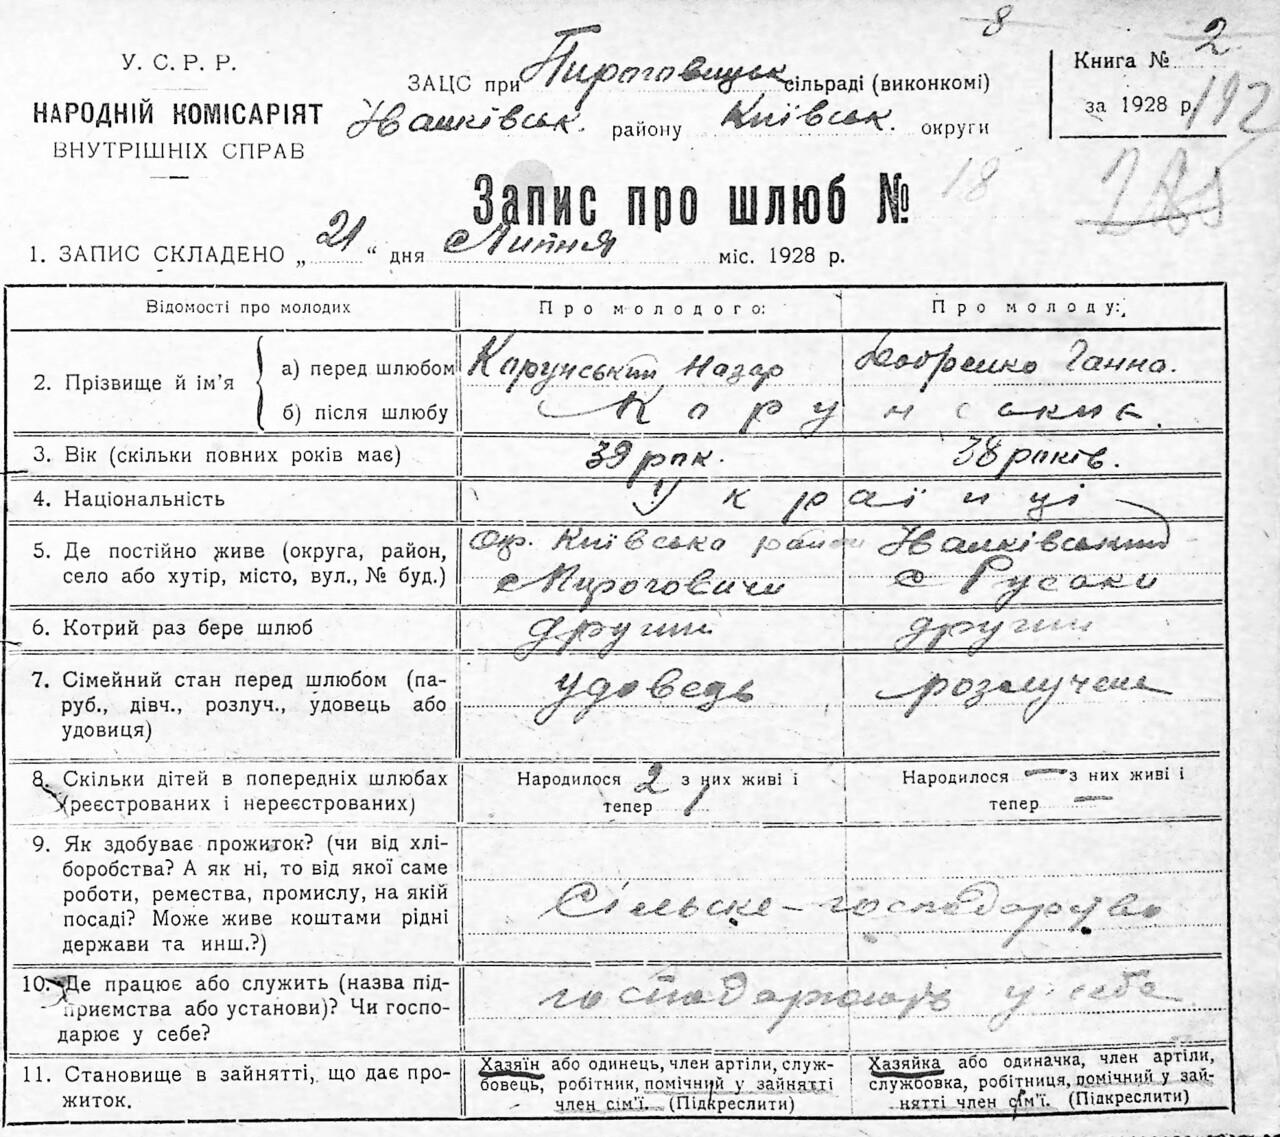 8
У. С. Р. Р.
НАРОДНІЙ КОМІСАРІЯТ
ВНУТРІШНІХ СПРАВ
ЗАЦС при Пироговицьк сільраді (виконкомі)
Іванківськ. району Київськ. округи
Книга № 2
за 1928 р. 192
Запис про шлюб № 18
185
1. ЗАПИС СКЛАДЕНО „ 21 “ дня Липня міс. 1928 р.
Відомості про молодих
Про молодого:
Про молоду:
2. Прізвище й ім’я
а) перед шлюбом Карунський Назар
Ганна.
б) після шлюбу
3. Вік (скільки повних років має) 39 рок. 38 років.
4. Національність Українці
5. Де постійно живе (округа, район, Окр. Київська район Іванківський
село або хутір, місто, вул., № буд.) с. Русаки
6. Котрий раз бере шлюб другий другий
7. Сімейний стан перед шлюбом (па- удовець розлучена
руб., дівч., розлуч., удовець або
удовиця)
8. Скільки дітей в попередніх шлюбах Народилося 2 з них живі і Народилося — з них живі і
(реєстрованих і нереєстрованих) тепер тепер —
9. Як здобуває прожиток? (чи від хлі-
боробства? А як ні, то від якої саме
роботи, ремества, промислу, на якій Сільске-господарство
посаді? Може живе коштами рідні
держави та инш.?)
10. Де працює або служить (назва під-
приємства або установи)? Чи госпо- господарюють у себе
дарює у себе?
11. Становище в зайнятті, що дає про-
житок.
Хазяїн або одинець, член артіли, служ-
бовець, робітник, помічний у зайнятті
член сім’ї. (Підкреслити)
Хазяйка або одиначка, член артіли,
службовка, робітниця, помічний у зай-
нятті член сім’ї. (Підкреслити)